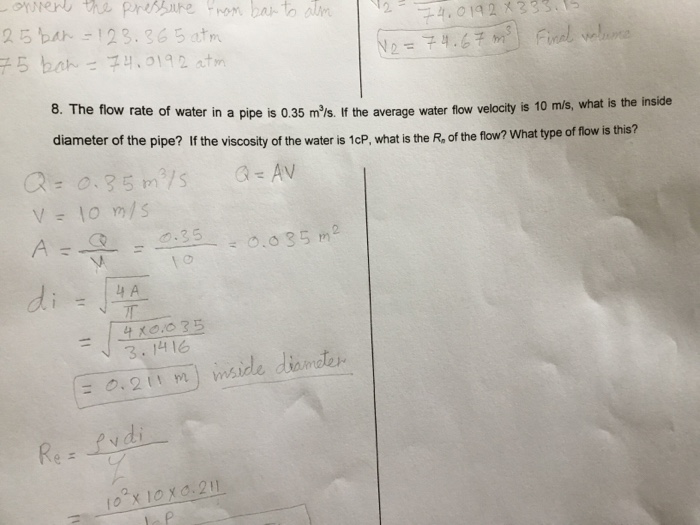 Convert the pressure from bar to atm
25 bar = 123.365 atm
75 bar = 74.0192 atm
74.0192 x 333.15
V2 = 74.67 m³ Final volume
8. The flow rate of water in a pipe is 0.35 m³/s. If the average water flow velocity is 10 m/s, what is the inside
diameter of the pipe? If the viscosity of the water is 1cP, what is the Rₙ of the flow? What type of flow is this?
Q = 0.35 m³/s Q = AV
V = 10 m/s
A = Q/V = 0.35/10 = 0.035 m²
di = √(4A/π)
= √(4 x 0.035/3.1416)
= 0.211 m inside diameter
Re = ρvdi
= 10² x 10 x 0.211